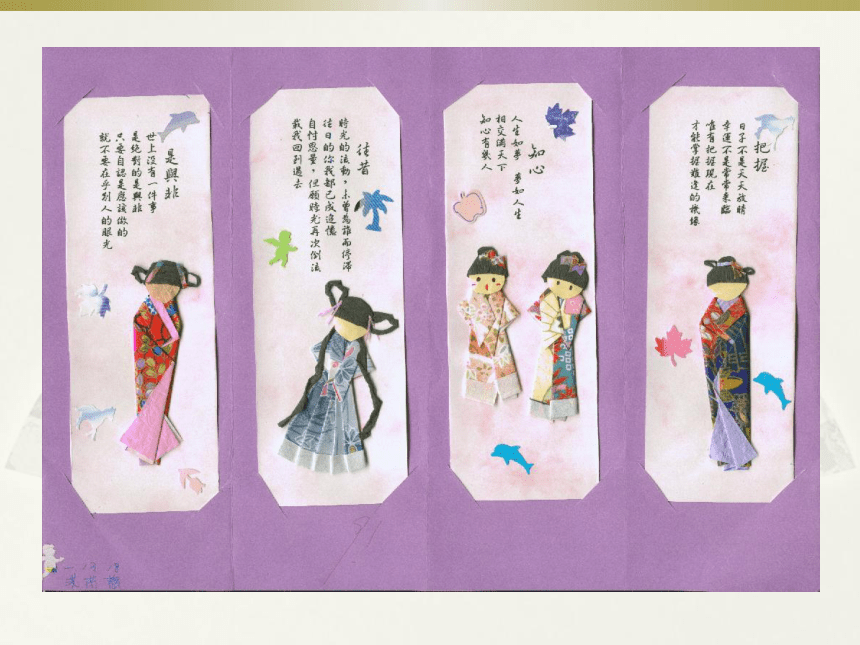 是與非
世上沒有一件事
是絕對的是與非
只要自認是應該做的
就不要在乎別人的眼光
往昔
時光的流動，未曾為誰而停滯
往日的你我都已成追憶
自付思量，但願時光再次倒流
載我回到過去
知心
人生如夢 夢如人生
相交滿天下
知心有幾人
把握
日子不是天天放晴
幸運不是常常來臨
唯有把握現在
才能掌握難逢的機緣